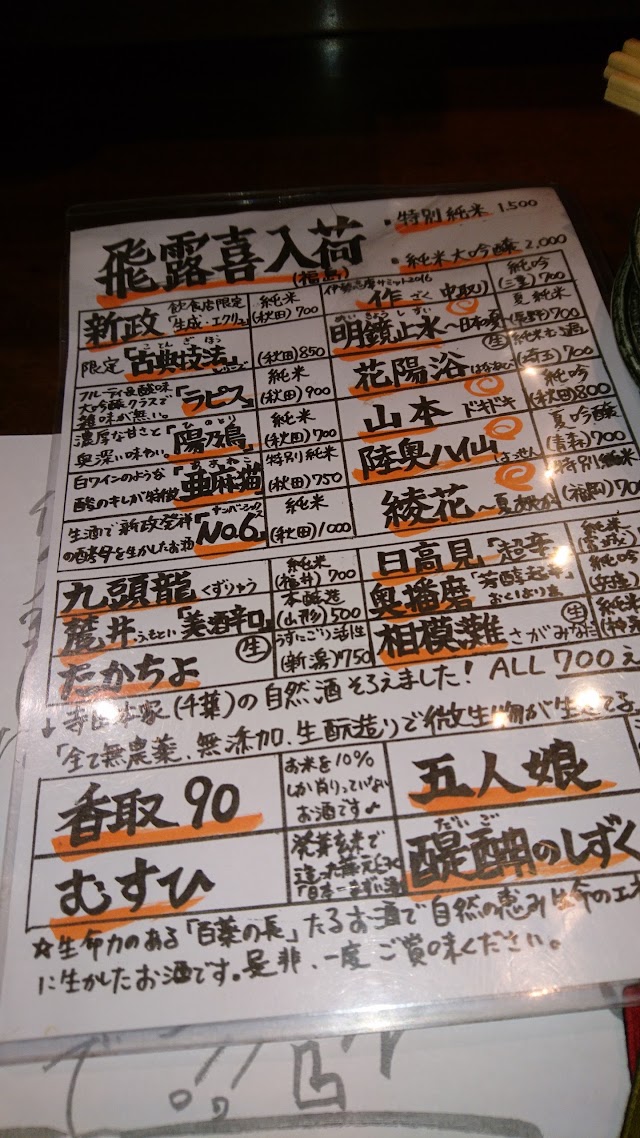 飛露喜入荷
(福島)
・特別純米 1.500
・純米大吟醸 2.000
新政 飲食店限定「生成・エクリュ」 純米(秋田)700
限定「古典技法」ことんぎほう (秋田)850
フルーティな酸味 大吟醸クラスで雑味が無い。「ラピス」 純米(秋田)900
濃厚な甘さと奥深い味わい。「陽乃鳥」ひのとり 純米(秋田)700
白ワインのような酸のキレが特徴「亜麻猫」あまねこ 特別純米(秋田)750
生酒で新政発祥の酵母を生かしたお酒「No.6」ナンバーシックス 純米(秋田)1000
伊勢志摩サミット2016
作 ざく 中取り 純吟(三重)700
明鏡止水 めいきょうしすい 〜日本の夏 夏純米(長野)700
花陽浴 はなあび 生 純米(埼玉)700
山本 ドキドキ 純吟(秋田)800
陸奥八仙 はっせん 夏吟醸(青森)700
綾花 特別純米(福岡)
九頭龍 くずりゅう 純米(福井)700
麓井 ふもとい「美酒辛口」 本醸造(山形)500
たかちよ 生 うすにごり活性(新潟)750
日高見「超辛」 純米(宮城)
奥播磨「芳醇超辛」おくはりま 純米
相模灘 さがみなだ 生 純米
↓寺田本家(千葉)の自然酒そろえました! ALL 700
「全て無農薬、無添加、生酛造りで微生物が生きてる
香取90 お米を10%しか削りっていないお酒です♪
五人娘
むすひ 発芽玄米で
醍醐のしずく だいご
☆生命力のある「百薬の長」たるお酒で自然の恵み生命の
に生かしたお酒です。是非、一度ご賞味ください。